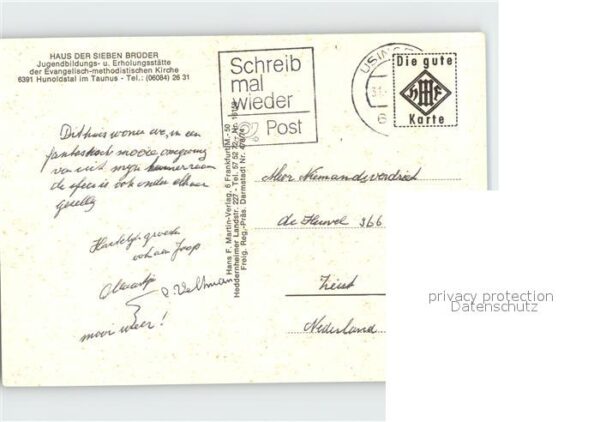 HAUS DER SIEBEN BRÜDER
Jugendbildungs- u. Erholungsstätte
der Evangelisch-methodistischen Kirche
6391 Hunoldstal im Taunus - Tel.: (06084) 26 31
Schreib
mal
wieder
Post
USING
Die gute
HMF
Karte
Dit huis wonen we, in een
fantastisch mooie omgeving
van uit mijn kamerraam
de sfeer is ook onder elkaar
gezellig
Hartelijk groeten
ook aan Joop
Maartje
Veltman
mooi weer!
Hans F. Martin-Verlag, 6 Frankfurt/M.- 50
Heddernheimer Landstr. 227 - Tel. 57 52 72
Freig. Reg.-Präs. Darmstadt Nr.
Meer Niemandsverdriet
de Heuvel 366
Zeist
Nederland
privacy protection
Datenschutz